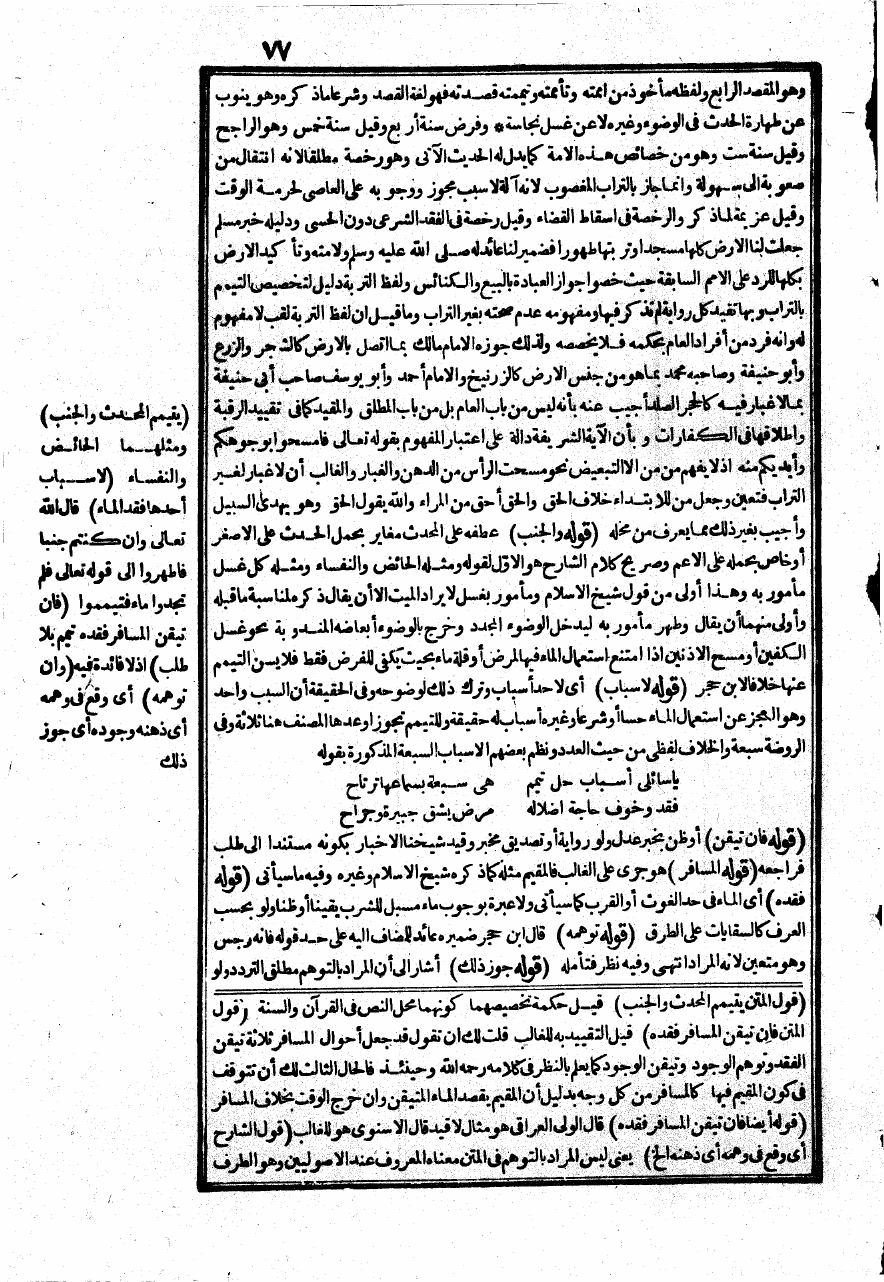 ٧٧
وهو المقصد الرابع ولفظه مأخوذ من أممته وتأممته وتيممته قصدته فهو لغة القصد وشرعا ما ذكره وهو ينوب
عن طهارة الحدث فى الوضوء وغيره لا عن غسل نجاسة * وفرض سنة أربع وقيل سنة خمس وهو الراجح
وقيل سنة ست وهو من خصائص هذه الامة كما يدل له الحديث الآتى وهو رخصة مطلقا لانه انتقال من
صعوبة الى سهولة وانما جاز بالتراب المغصوب لانه آلة لا سبب مجوز ووجو به على العاصى لحرمة الوقت
وقيل عزيمة لما ذكر والرخصة فى اسقاط القضاء وقيل رخصة فى الفقد الشرعى دون الحسى ودليله خبر مسلم
جعلت لنا الارض كلها مسجدا وتربتها طهورا فضمير لنا عائد له صلى الله عليه وسلم ولامته وتأكيد الارض
بكلها للرد على الامم السابقة حيث خصوا جواز العبادة بالبيع والكنائس ولفظ التربة دليل لتخصيص التيمم
بالتراب وبها تقيد كل رواية لم تذكر فيها ومفهومه عدم صحته بغير التراب وما قيل ان لفظ التربة لقب لا مفهوم
له وانه فرد من أفراد العام بحكمه فلا يخصصه ولذلك جوزه الامام مالك بما اتصل بالارض كالشجر والزرع
وأبو حنيفة وصاحبه محمد بما هو من جنس الارض كالزرنيخ والامام أحمد وأبو يوسف صاحب أبى حنيفة
بما لا غبار فيه كالحجر الصلد أجيب عنه بأنه ليس من باب العام بل من باب المطلق والمقيد كما فى تقييد الرقبة
واطلاقها فى الكفارات وبأن الآية الشريفة دالة على اعتبار المفهوم بقوله تعالى فامسحوا بوجوهكم
وأيديكم منه اذ لا يفهم من من الا التبعيض نحو مسحت الرأس من الدهن والغبار والغالب أن لا غبار لغير
التراب فتعين وجعل من للابتداء خلاف الحق والحق أحق من المراء والله يقول الحق وهو يهدى السبيل
وأجيب بغير ذلك مما يعرف من محله (قوله والجنب) عطفه على المحدث مغاير بحمل الحدث على الاصغر
أو خاص بحمله على الاعم وصريح كلام الشارح هو الاول لقوله ومثله الحائض والنفساء ومثله كل غسل
مأمور به وهذا أولى من قول شيخ الاسلام ومأمور بغسل لايراد الميت الا أن يقال ذكره لمناسبة ما قبله
وأولى منهما أن يقال وطهر مأمور به ليدخل الوضوء المجدد وخرج بالوضوء أبعاضه المندوبة نحو غسل
الكفين أو مسح الاذنين اذا امتنع استعمال الماء فيها لمرض أو قلة ماء بحيث يكفى للفرض فقط فلا يسن التيمم
عنها خلافا لابن حجر (قوله لاسباب) أى لاحد أسباب وترك ذلك لوضوحه وفى الحقيقة أن السبب واحد
وهو العجز عن استعمال الماء حسا أو شرعا وغيره أسباب له حقيقة وللتيمم تجوزا وعدها المصنف هنا ثلاثة وفى
الروضة سبعة والخلاف لفظى من حيث العدد ونظم بعضهم الاسباب السبعة المذكورة بقوله
ياسائلى أسباب حل تيمم هى سبعة بسماعها ترتاح
فقد وخوف حاجة اضلاله مرض يشق جبيرة وجراح
(قوله فان تيقن) أو ظن بخبر عدل ولو رواية أو تصديق مخبر وقيد شيخنا الاخبار بكونه مستندا الى طلب
فراجعه (قوله المسافر) هو جرى على الغالب فالمقيم مثله كما ذكره شيخ الاسلام وغيره وفيه ما سيأتى (قوله
فقده) أى الماء فى حد الغوث أو القرب كما سيأتى ولا عبرة بوجوب ماء مسبل للشرب يقينا أو ظنا ولو بحسب
العرف كالسقايات على الطرق (قوله توهمه) قال ابن حجر ضميره عائد للمضاف اليه على حد قوله فانه رجس
وهو متعين لانه المراد انتهى وفيه نظر فتأمله (قوله جوز ذلك) أشار الى أن المراد بالتوهم مطلق التردد ولو
(قول المتن يتيمم المحدث والجنب) قيل حكمة تخصيصهما كونهما محل النص فى القرآن والسنة (قول
المتن فان تيقن المسافر فقده) قيل التقييد به للغالب قلت لك ان تقول قد جعل أحوال المسافر ثلاثة تيقن
الفقد وتوهم الوجود وتيقن الوجود كما يعلم بالنظر فى كلامه رحمه الله وحينئذ فالحال الثالث لك أن تتوقف
فى كون المقيم فيها كالمسافر من كل وجه بدليل أن المقيم يقصد الماء المتيقن وان خرج الوقت بخلاف المسافر
(قوله أيضا فان تيقن المسافر فقده) قال الولى العراقى هو مثال لا قيد قال الاسنوى هو للغالب (قول الشارح
أى وقع فى وهمه أى ذهنه الخ) يعنى ليس المراد بالتوهم فى المتن معناه المعروف عند الاصوليين وهو الطرف
(يتيمم المحدث والجنب)
ومثلهما الحائض
والنفساء (لاسباب
أحدها فقد الماء) قال الله
تعالى وان كنتم جنبا
فاطهروا الى قوله تعالى فلم
تجدوا ماء فتيمموا (فان
تيقن المسافر فقده تيمم بلا
طلب) اذ لا فائدة فيه (وان
توهمه) أى وقع فى وهمه
أى ذهنه وجوده أى جوز
ذلك